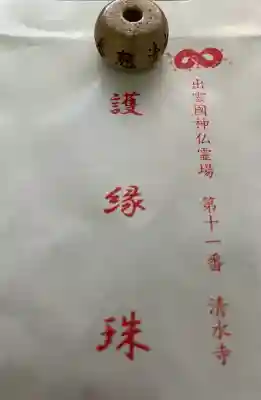 出雲國神仏霊場 第十一番 清水寺
護縁珠